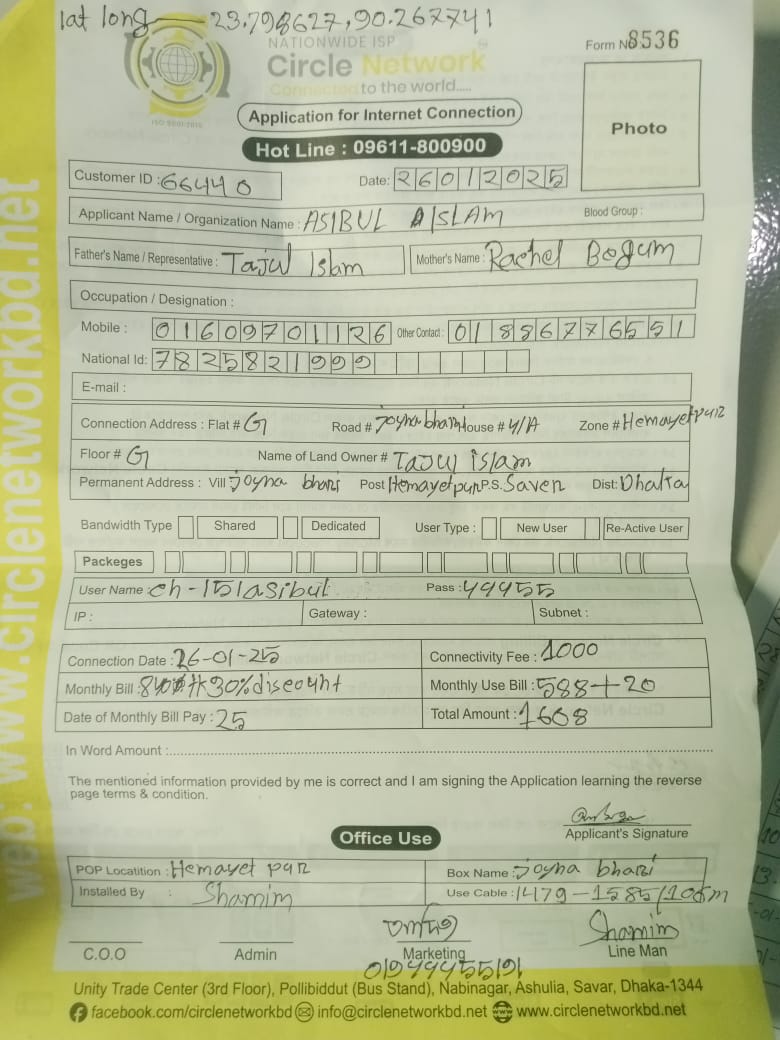 lat long — 23.798627,90.267741
NATIONWIDE ISP
Circle Network
Connected to the world.....
ISO 9001:2015
Form No 8536
Application for Internet Connection
Hot Line : 09611-800900
Photo
Customer ID : 66440
Date: 26012025
Applicant Name / Organization Name : ASIBUL ISLAM
Blood Group :
Father's Name / Representative : Tajul Islam
Mother's Name : Rachel Begum
Occupation / Designation :
Mobile : 01609701126 Other Contact : 01886776551
National Id: 7825821999
E-mail :
Connection Address : Flat # G Road # Joyna bhari House # 4/A Zone # Hemayetpur
Floor # G Name of Land Owner # Tajul islam
Permanent Address : Vill Joyna bhari Post Hemayetpur P.S. Saver Dist: Dhaka
Bandwidth Type Shared Dedicated User Type : New User Re-Active User
Packeges
User Name : ch-151asibul Pass : 49455
IP : Gateway : Subnet :
Connection Date : 26-01-25 Connectivity Fee : 1000
Monthly Bill : 30% discount Monthly Use Bill : 588+20
Date of Monthly Bill Pay : 25 Total Amount : 1608
In Word Amount :
The mentioned information provided by me is correct and I am signing the Application learning the reverse
page terms & condition.
Applicant's Signature
Office Use
POP Locatition : Hemayet pur Box Name : Joyna bhari
Installed By : Shamim Use Cable : 1479-1585/106m
Shamim
C.O.O Admin Marketing Line Man
01944455191
Unity Trade Center (3rd Floor), Pollibiddut (Bus Stand), Nabinagar, Ashulia, Savar, Dhaka-1344
facebook.com/circlenetworkbd info@circlenetworkbd.net www.circlenetworkbd.net
web: www.circlenetworkbd.net